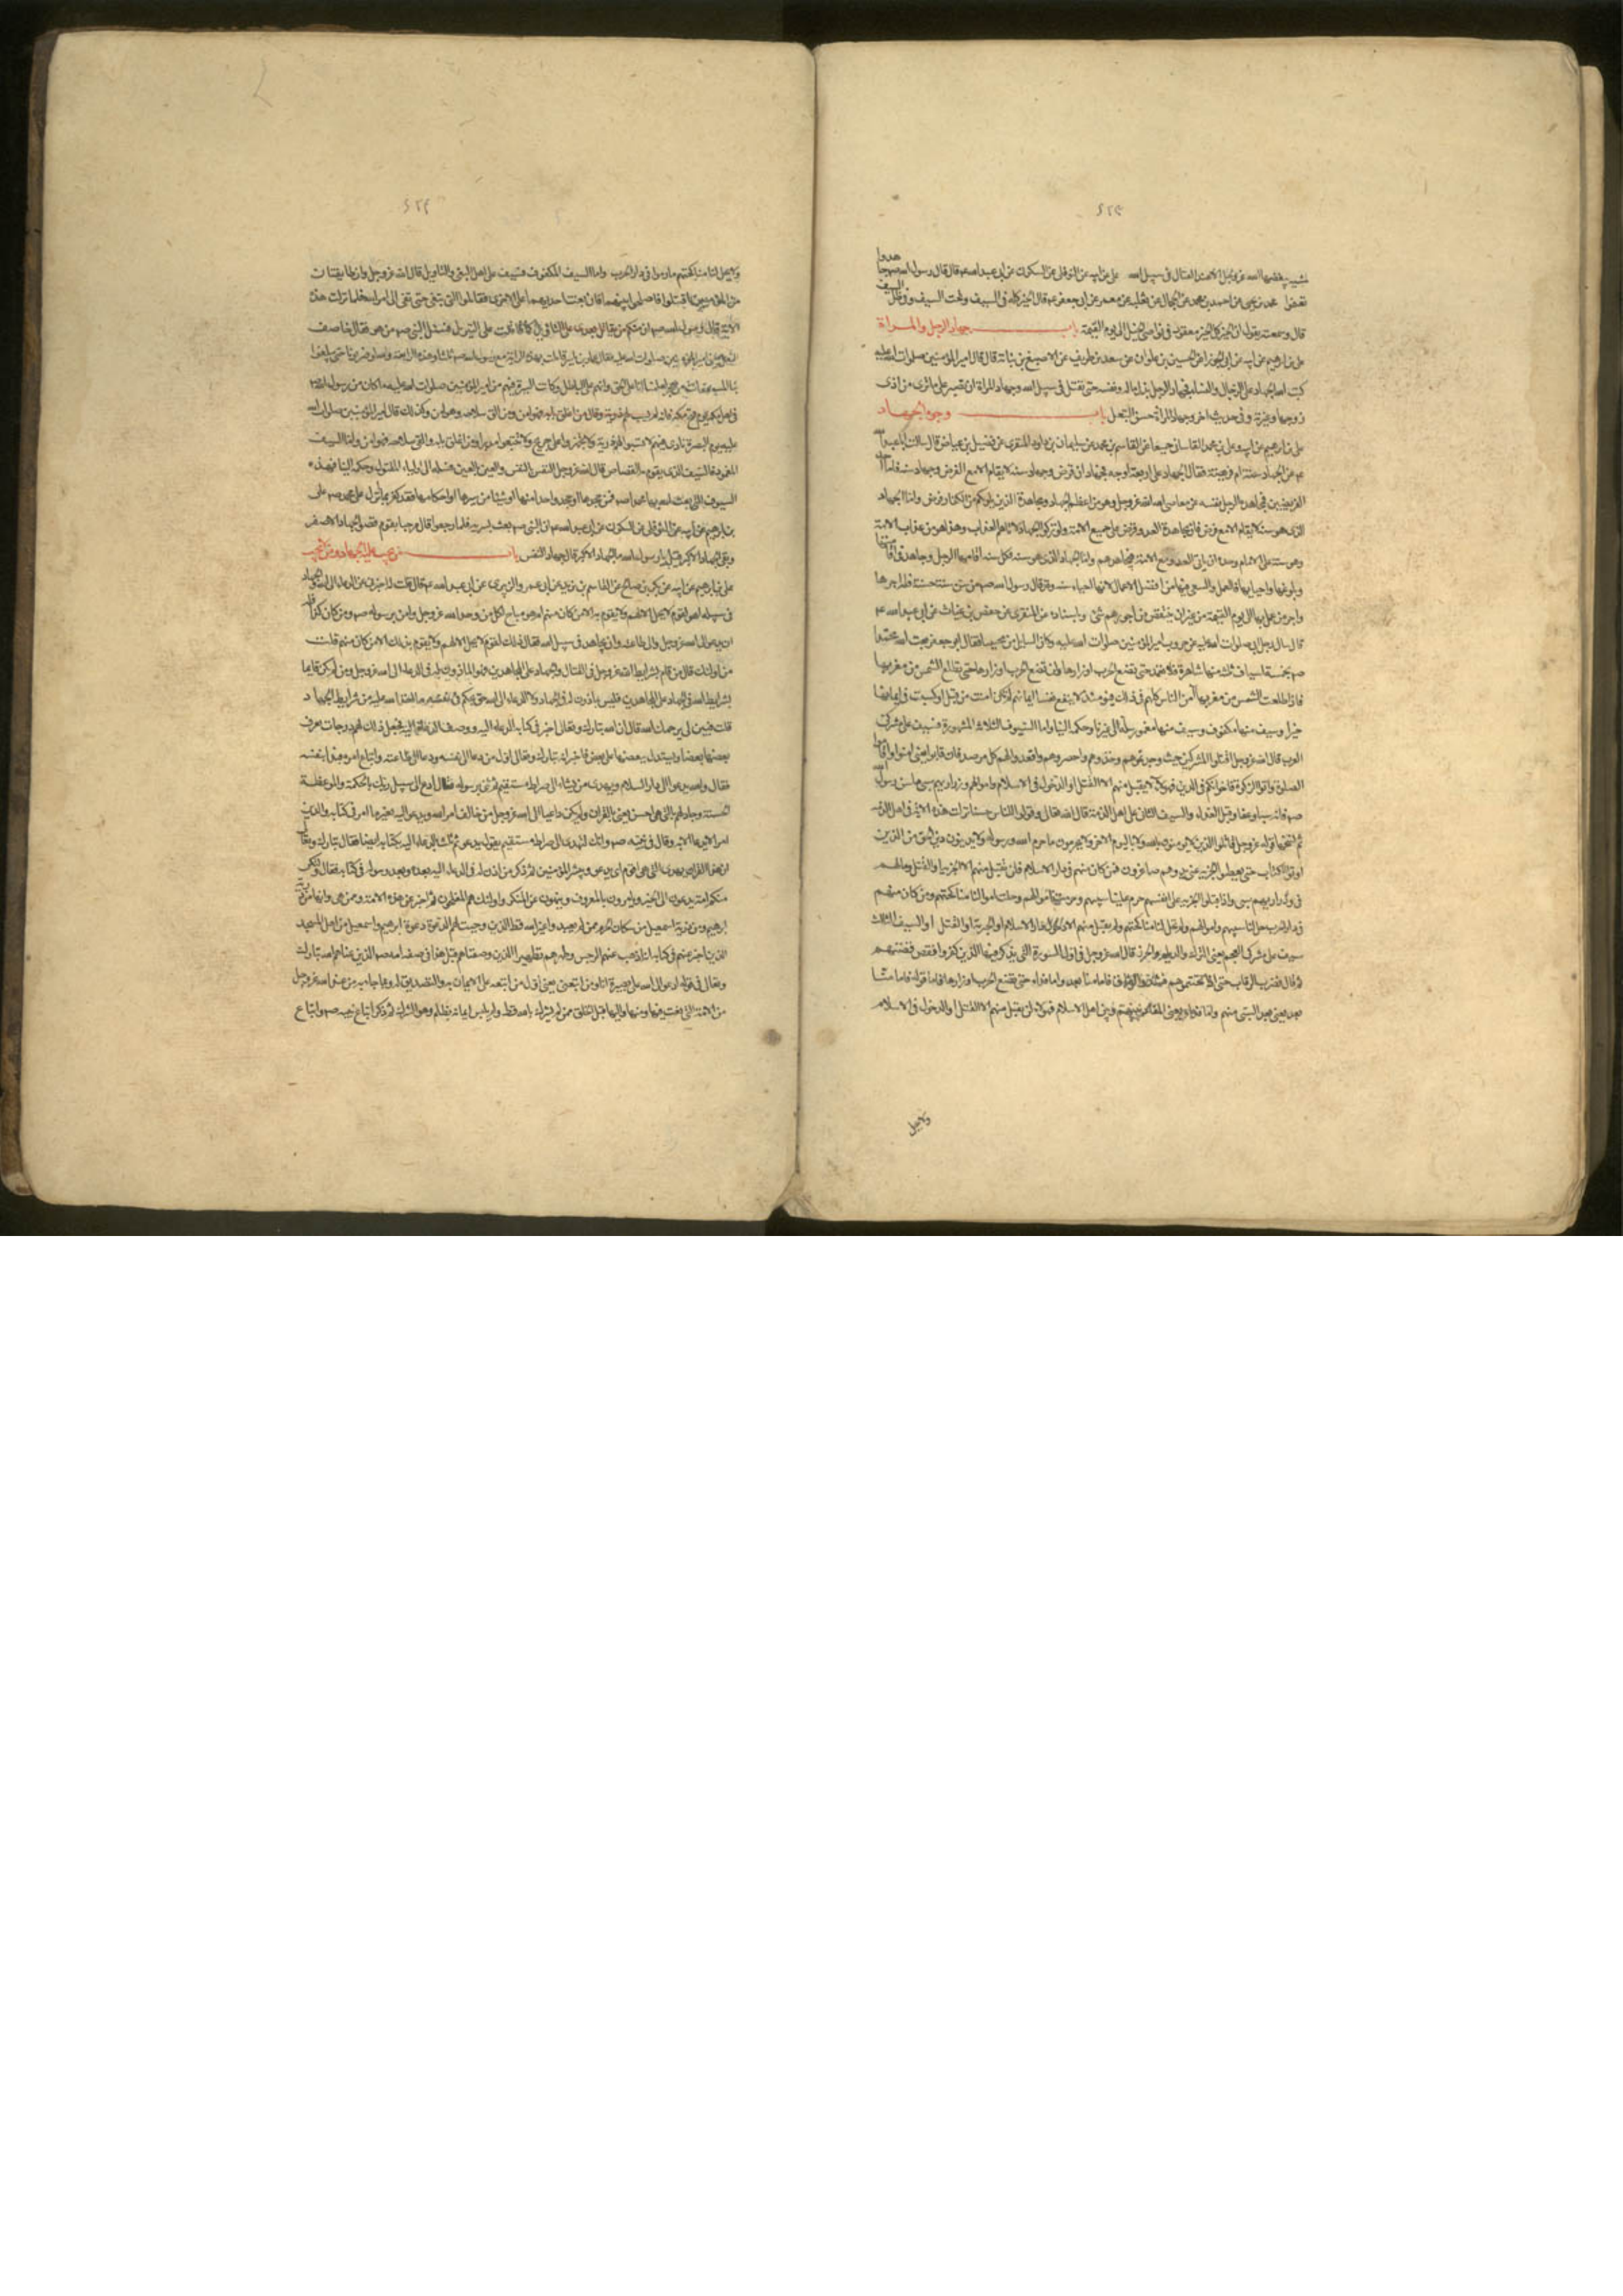 ٤٢٥
هدوا
يغضبها الله عز وجل الا عند القتال في سبيل الله علي عن ابيه عن النوفلي عن السكوني عن ابي عبد الله ع قال قال رسول الله ص جا
تغنموا محمد بن يحيى عن احمد بن محمد عن الحجال عن ثعلبة عن معمر عن ابي جعفر ع قال الخير كله في السيف وتحت السيف وفي ظل السيف
قال وسمعته يقول ان الخير كل الخير معقود في نواصي الخيل الى يوم القيمة باب جهاد الرجل والمراة
علي بن ابرهيم عن ابيه عن ابي الجوزا عن الحسين بن علوان عن سعد بن طريف عن الاصبغ بن نباتة قال قال امير المؤمنين صلوات الله عليه
كتب الله الجهاد على الرجال والنساء فجهاد الرجل بذل ماله ونفسه حتى يقتل في سبيل الله وجهاد المراة ان تصبر على ما ترى من اذى
زوجها وغيرته وفي حديث اخر وجهاد المراة حسن التبعل باب وجوه الجهاد
علي بن ابرهيم عن ابيه وعلي بن محمد القاساني جميعا عن القاسم بن محمد عن سليمان بن داود المنقري عن فضيل بن عياض قال سالت ابا عبد الله
ع عن الجهاد سنة ام فريضة فقال الجهاد على اربعة اوجه فجهادان فرض وجهاد سنة لا يقام الا مع الفرض وجهاد سنة فاما احد
الفرضين فمجاهدة الرجل نفسه عن معاصي الله عز وجل وهو من اعظم الجهاد ومجاهدة الذين يلونكم من الكفار فرض واما الجهاد
الذي هو سنة لا يقام الا مع فرض فان مجاهدة العدو فرض على جميع الامة ولو تركوا الجهاد لاتاهم العذاب وهذا هو من عذاب الامة
وهو سنة على الامام وحده ان ياتي العدو مع الامة فيجاهدهم واما الجهاد الذي هو سنة فكل سنة اقامها الرجل وجاهد في اقامتها
وبلوغها واحيائها فالعمل والسعي فيها من افضل الاعمال لانها احياء سنة وقد قال رسول الله ص من سن سنة حسنة فله اجرها
واجر من عمل بها الى يوم القيمة من غير ان ينقص من اجورهم شيء وباسناده عن المنقري عن حفص بن غياث عن ابي عبد الله ع
قال سال رجل ابي صلوات الله عليه عن حروب امير المؤمنين صلوات الله عليه وكان السايل من محبينا فقال ابو جعفر ع بعث الله محمدا
ص بخمسة اسياف ثلثة منها شاهرة فلا تغمد حتى تضع الحرب اوزارها ولن تضع الحرب اوزارها حتى تطلع الشمس من مغربها
فاذا طلعت الشمس من مغربها آمن الناس كلهم في ذلك اليوم فيومئذ لا ينفع نفسا ايمانها لم تكن امنت من قبل او كسبت في ايمانها
خيرا وسيف منها مكفوف وسيف منها مغمود سله الى غيرنا وحكمه الينا واما السيوف الثلاثة المشهورة فسيف على مشركي
العرب قال الله عز وجل اقتلوا المشركين حيث وجدتموهم وخذوهم واحصروهم واقعدوا لهم كل مرصد فان تابوا يعني امنوا واقاموا
الصلوة واتوا الزكوة فاخوانكم في الدين فهؤلاء لا يقبل منهم الا القتل او الدخول في الاسلام واموالهم وذراريهم سبي على ما سن رسول الله
ص فانه سبى وعفا وقبل الفداء والسيف الثاني على اهل الذمة قال الله تعالى وقولوا للناس حسنا نزلت هذه الاية في اهل الذمة
ثم نسخها قوله عز وجل قاتلوا الذين لا يؤمنون بالله ولا باليوم الاخر ولا يحرمون ما حرم الله ورسوله ولا يدينون دين الحق من الذين
اوتوا الكتاب حتى يعطوا الجزية عن يد وهم صاغرون فمن كان منهم في دار الاسلام فلن يقبل منهم الا الجزية او القتل ومالهم
في وذراريهم سبي واذا قبلوا الجزية على انفسهم حرم علينا سبيهم وحرمت اموالهم وحلت لنا مناكحتهم ومن كان منهم
في دار الحرب حل لنا سبيهم واموالهم ولم تحل لنا مناكحتهم ولم يقبل منهم الا دخول دار الاسلام او الجزية او القتل والسيف الثالث
سيف على مشركي العجم يعني الترك والديلم والخزر قال الله عز وجل في اول السورة التي يذكر فيها الذين كفروا فقص قصتهم
ثم قال فضرب الرقاب حتى اذا اثخنتموهم فشدوا الوثاق فاما منا بعد واما فداء حتى تضع الحرب اوزارها فاما قوله فاما منا
بعد يعني بعد السبي منهم واما فداء يعني المفاداة بينهم وبين اهل الاسلام فهؤلاء لن يقبل منهم الا القتل او الدخول في الاسلام
ولا يحل
٤٢٦
ولا يحل لنا مناكحتهم ما داموا في دار الحرب واما السيف المكفوف فسيف على اهل البغي والتاويل قال الله عز وجل وان طايفتان
من المؤمنين اقتتلوا فاصلحوا بينهما فان بغت احديهما على الاخرى فقاتلوا التي تبغي حتى تفئ الى امر الله فلما نزلت هذه
الاية قال رسول الله ص ان منكم من يقاتل بعدي على التاويل كما قاتلت على التنزيل فسئل النبي ص من هو فقال خاصف
النعل يعني امير المؤمنين صلوات الله عليه فقال عمار بن ياسر قاتلت بهذه الراية مع رسول الله ص ثلثا وهذه الرابعة والله لو ضربونا حتى يبلغوا
بنا السعفات من هجر لعلمنا انا على الحق وانهم على الباطل وكانت السيرة فيهم من امير المؤمنين صلوات الله عليه ما كان من رسول الله ص
في اهل مكة يوم فتح مكة فانه لم يسب لهم ذرية وقال من اغلق بابه فهو امن ومن القى سلاحه فهو امن وكذلك قال امير المؤمنين صلوات الله
عليه يوم البصرة نادى فيهم لا تسبوا لهم ذرية ولا تجهزوا على جريح ولا تتبعوا مدبرا ومن اغلق بابه والقى سلاحه فهو امن واما السيف
المغمود فالسيف الذي يقوم به القصاص قال الله عز وجل النفس بالنفس والعين بالعين فسله الى اولياء المقتول وحكمه الينا فهذه
السيوف التي بعث الله بها محمدا ص فمن جحدها او جحد واحدا منها او شيئا من سيرها او احكامها فقد كفر بما انزل على محمد ص علي
بن ابرهيم عن ابيه عن النوفلي عن السكوني عن ابي عبد الله ع ان النبي ص بعث بسرية فلما رجعوا قال مرحبا بقوم قضوا الجهاد الاصغر
وبقي الجهاد الاكبر قيل يا رسول الله ما الجهاد الاكبر قال جهاد النفس باب من يجب عليه الجهاد ومن لا يجب
علي بن ابرهيم عن ابيه عن بكر بن صالح عن القاسم بن بريد عن ابي عمرو الزبيري عن ابي عبد الله ع قال قلت له اخبرني عن الدعاء الى الله والجهاد
في سبيله اهو لقوم لا يحل الا لهم ولا يقوم به الا من كان منهم ام هو مباح لكل من وحد الله عز وجل وامن برسوله ص ومن كان كذا فله
ان يدعو الى الله عز وجل والى طاعته وان يجاهد في سبيل الله فقال ذلك لقوم لا يحل الا لهم ولا يقوم بذلك الا من كان منهم قلت
من اولئك قال من قام بشرايط الله عز وجل في القتال والجهاد على المجاهدين فهو الماذون له في الدعاء الى الله عز وجل ومن لم يكن قايما
بشرايط الله في الجهاد على المجاهدين فليس بماذون له في الجهاد ولا الدعاء الى الله حتى يحكم في نفسه ما اخذ الله عليه من شرايط الجهاد
قلت فبين لي يرحمك الله قال ان الله تبارك وتعالى اخبر في كتابه الدعاء اليه ووصف الدعاة اليه فجعل ذلك لهم درجات يعرف
بعضها بعضا ويستدل ببعضها على بعض فاخبر انه تبارك وتعالى اول من دعا الى نفسه ودعا الى طاعته واتباع امره فبدا بنفسه
فقال والله يدعو الى دار السلام ويهدي من يشاء الى صراط مستقيم ثم ثنى برسوله فقال ادع الى سبيل ربك بالحكمة والموعظة
الحسنة وجادلهم بالتي هي احسن يعني بالقران ولم يكن داعيا الى الله عز وجل من خالف امر الله ويدعو اليه بغير ما امر في كتابه والذي
امر الا يدعا الا به وقال في نبيه ص وانك لتهدي الى صراط مستقيم يقول تدعو ثم ثلث بالدعاء اليه بكتابه ايضا فقال تبارك وتعالى
ان هذا القران يهدي للتي هي اقوم اي يدعو ويبشر المؤمنين ثم ذكر من اذن له في الدعاء اليه بعده وبعد رسوله في كتابه فقال ولتكن
منكم امة يدعون الى الخير ويامرون بالمعروف وينهون عن المنكر واولئك هم المفلحون ثم اخبر عن هذه الامة وممن هي وانها من ذرية
ابرهيم ومن ذرية اسمعيل من سكان الحرم ممن لم يعبدوا غير الله قط الذين وجبت لهم الدعوة دعوة ابرهيم واسمعيل من اهل المسجد
الذين اخبر عنهم في كتابه انه اذهب عنهم الرجس وطهرهم تطهيرا الذين وصفناهم قبل هذا في صفة امة محمد ص الذين عناهم الله تبارك
وتعالى في قوله ادعو الى الله على بصيرة انا ومن اتبعني يعني اول من اتبعه على الايمان به والتصديق له وبما جاء به من عند الله عز وجل
من الامة التي بعث فيها ومنها واليها قبل الخلق ممن لم يشرك بالله قط ولم يلبس ايمانه بظلم وهو الشرك ثم ذكر اتباع نبيه ص واتباع